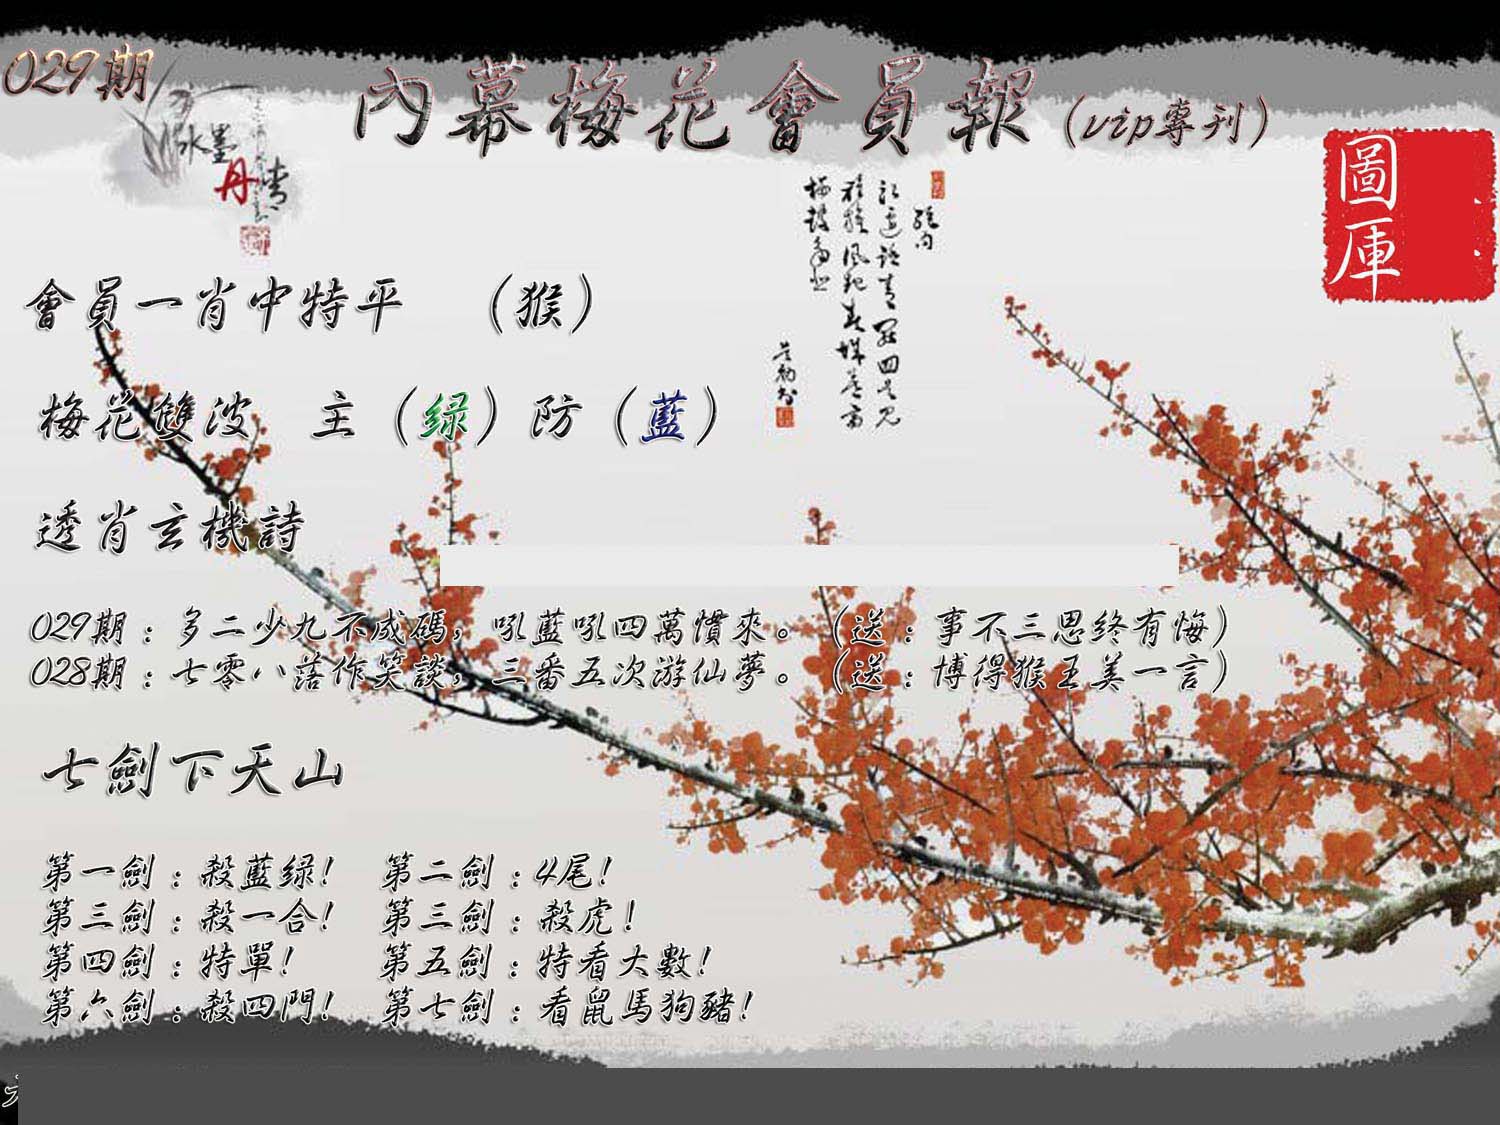 029期
內幕梅花會員報（vip專刊）
水墨
丹青
圖庫
會員一肖中特平　（猴）
梅花雙波　主（绿）防（藍）
透肖玄機詩
029期：多二少九不成碼，吼藍吼四萬慣來。（送：事不三思终有悔）
028期：七零八落作笑談，三番五次游仙夢。（送：博得猴王美一言）
七劍下天山
第一劍：殺藍绿！　第二劍：4尾！
第三劍：殺一合！　第三劍：殺虎！
第四劍：特單！　第五劍：特看大數！
第六劍：殺四門！　第七劍：看鼠馬狗豬！